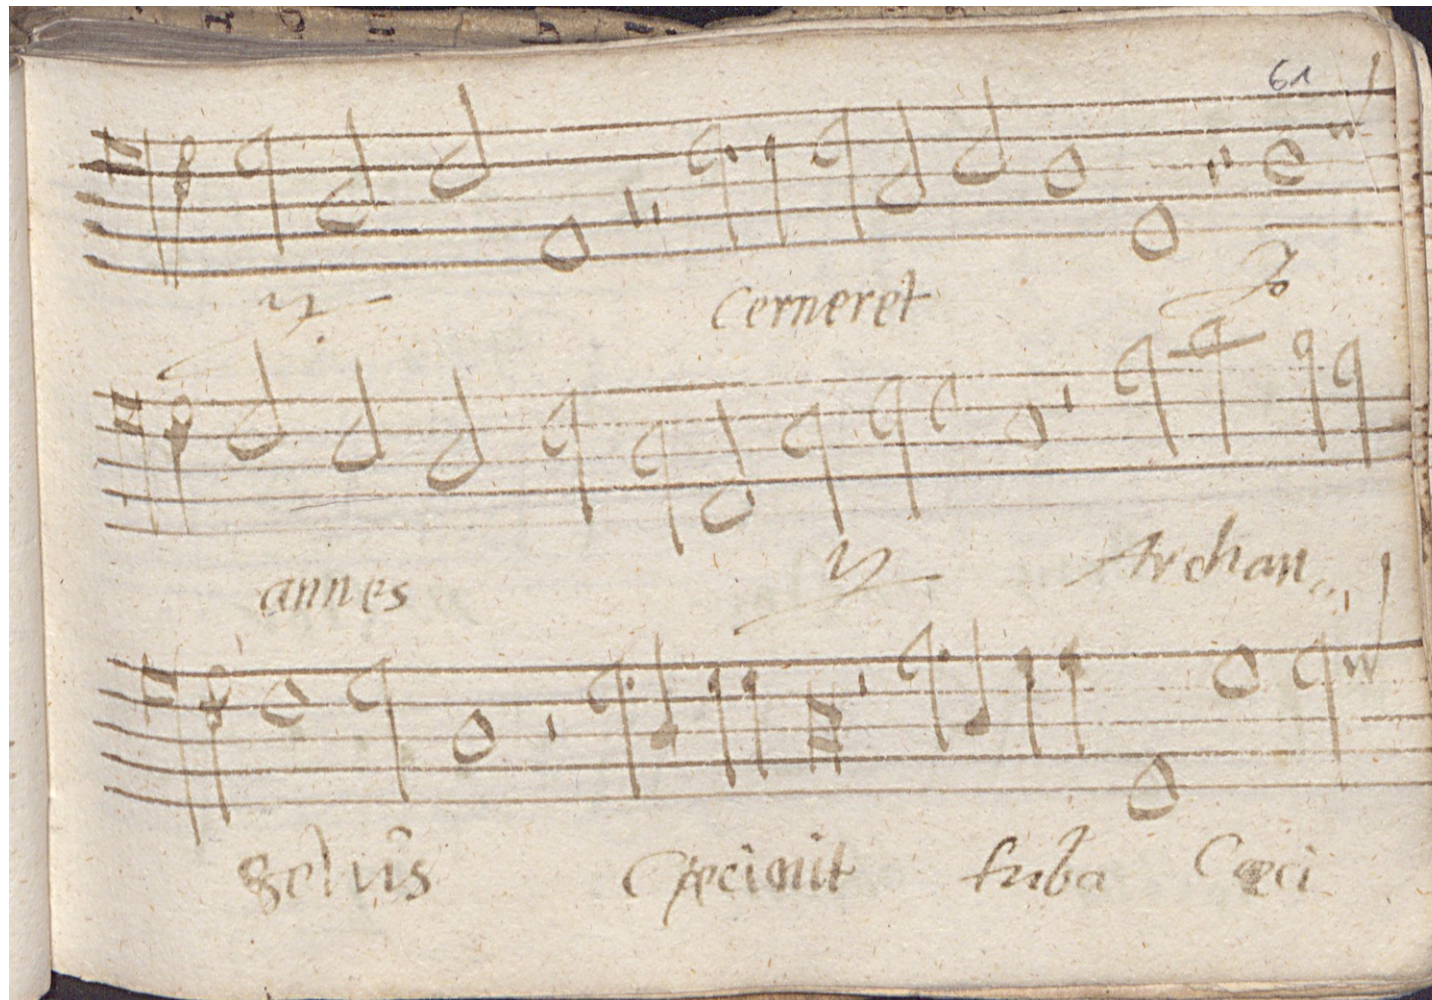 61
ij cerneret Jo
annes ij Archan
gelus Cecinit tuba Cœci